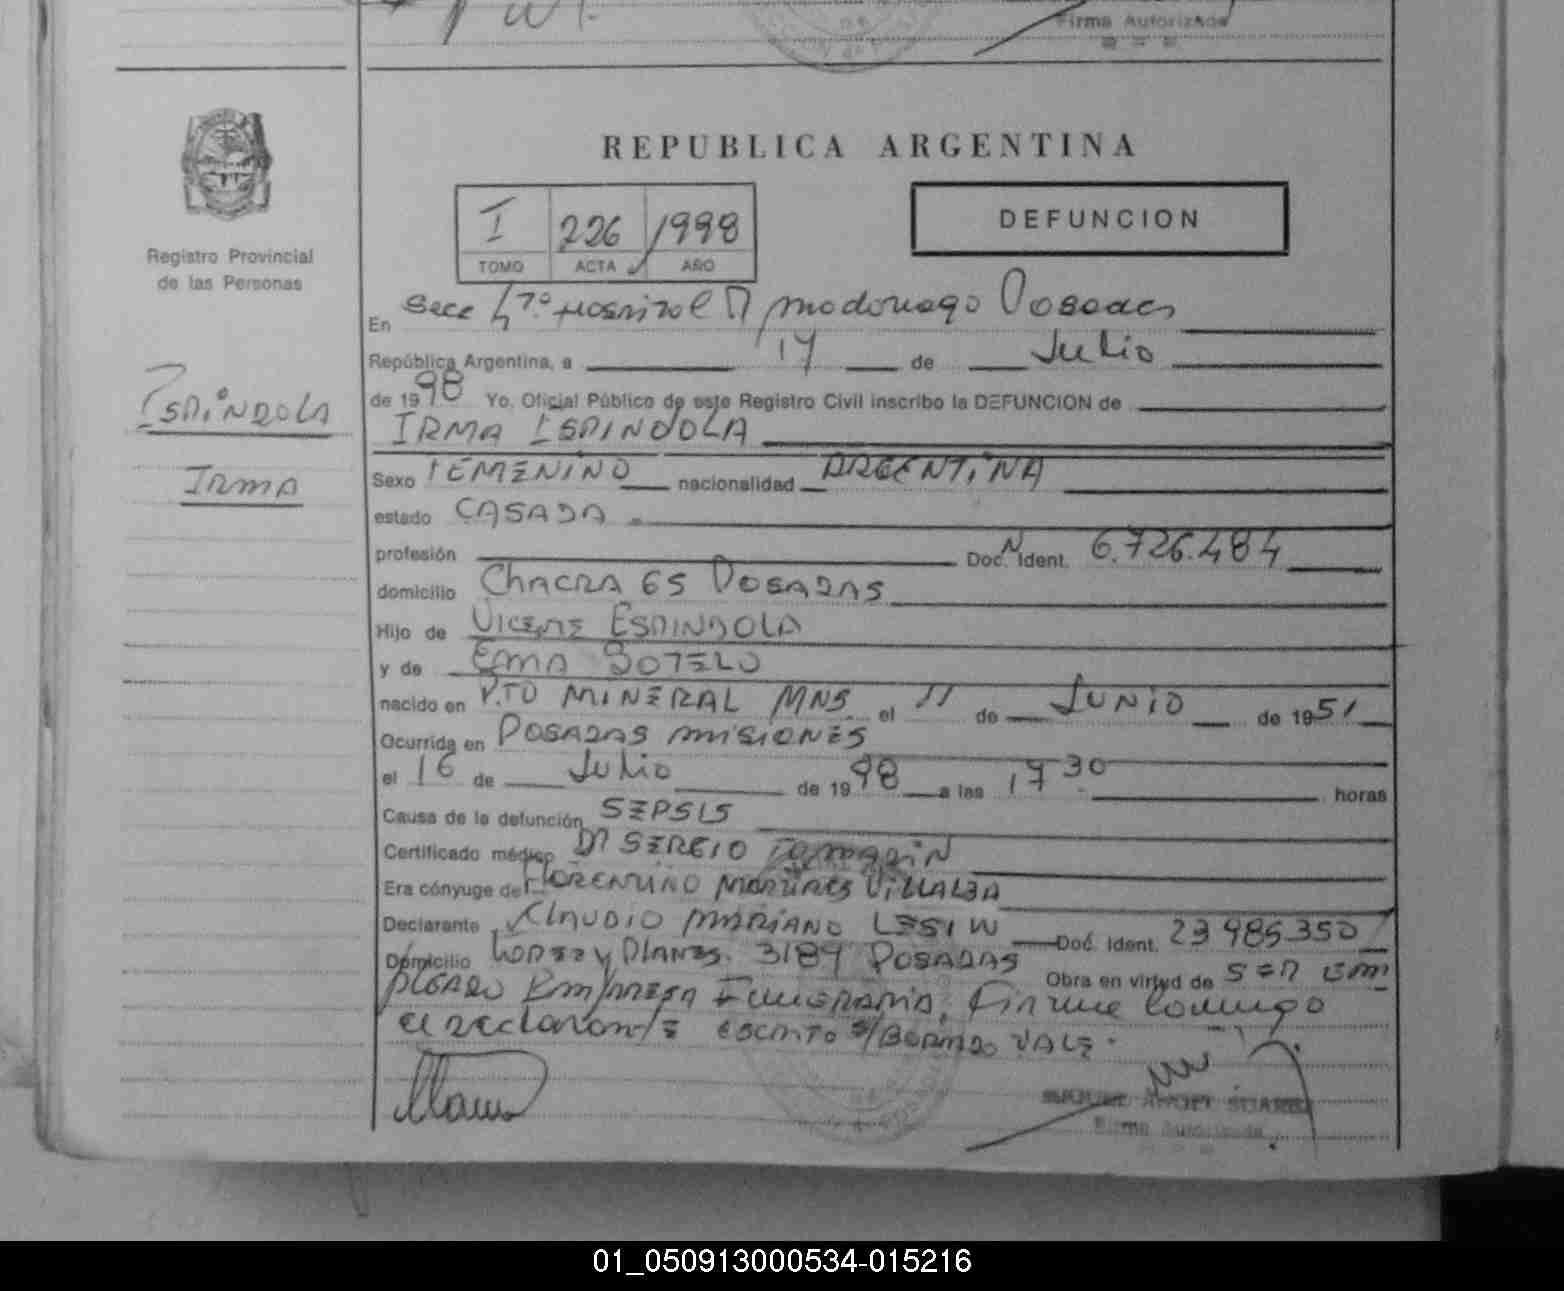 Firma Autorizada
REPUBLICA ARGENTINA
I 226 1998
TOMO ACTA AÑO
DEFUNCION
Registro Provincial
de las Personas
ESPINDOLA
IRMA
En Secc 7º Hospital R Madariaga Posadas
República Argentina, a 17 de Julio
de 1998 Yo, Oficial Público de este Registro Civil inscribo la DEFUNCION de
IRMA ESPINDOLA
Sexo FEMENINO nacionalidad ARGENTINA
estado CASADA
profesión Doc. N Ident. 6.726.484
domicilio CHACRA 65 POSADAS
Hijo de VICENTE ESPINDOLA
y de EMA BOTELO
nacido en PTO MINERAL MNS el 11 de JUNIO de 1951
Ocurrida en POSADAS MISIONES
el 16 de Julio de 1998 a las 17 30 horas
Causa de la defunción SEPSIS
Certificado médico DR SERGIO
Era cónyuge de FLORENTINO MARTINES VILLALBA
Declarante CLAUDIO MARIANO LESIW Doc. Ident. 23 985.350
Domicilio LOPEZ Y PLANES. 3189 POSADAS Obra en virtud de SER EM
PLEADO EMPRESA FUNERARIA. Firma conmigo
el declarante ESCRITO S/BORRADO VALE.
MIGUEL ANGEL SUAREZ
Firma Autorizada
01_050913000534-015216